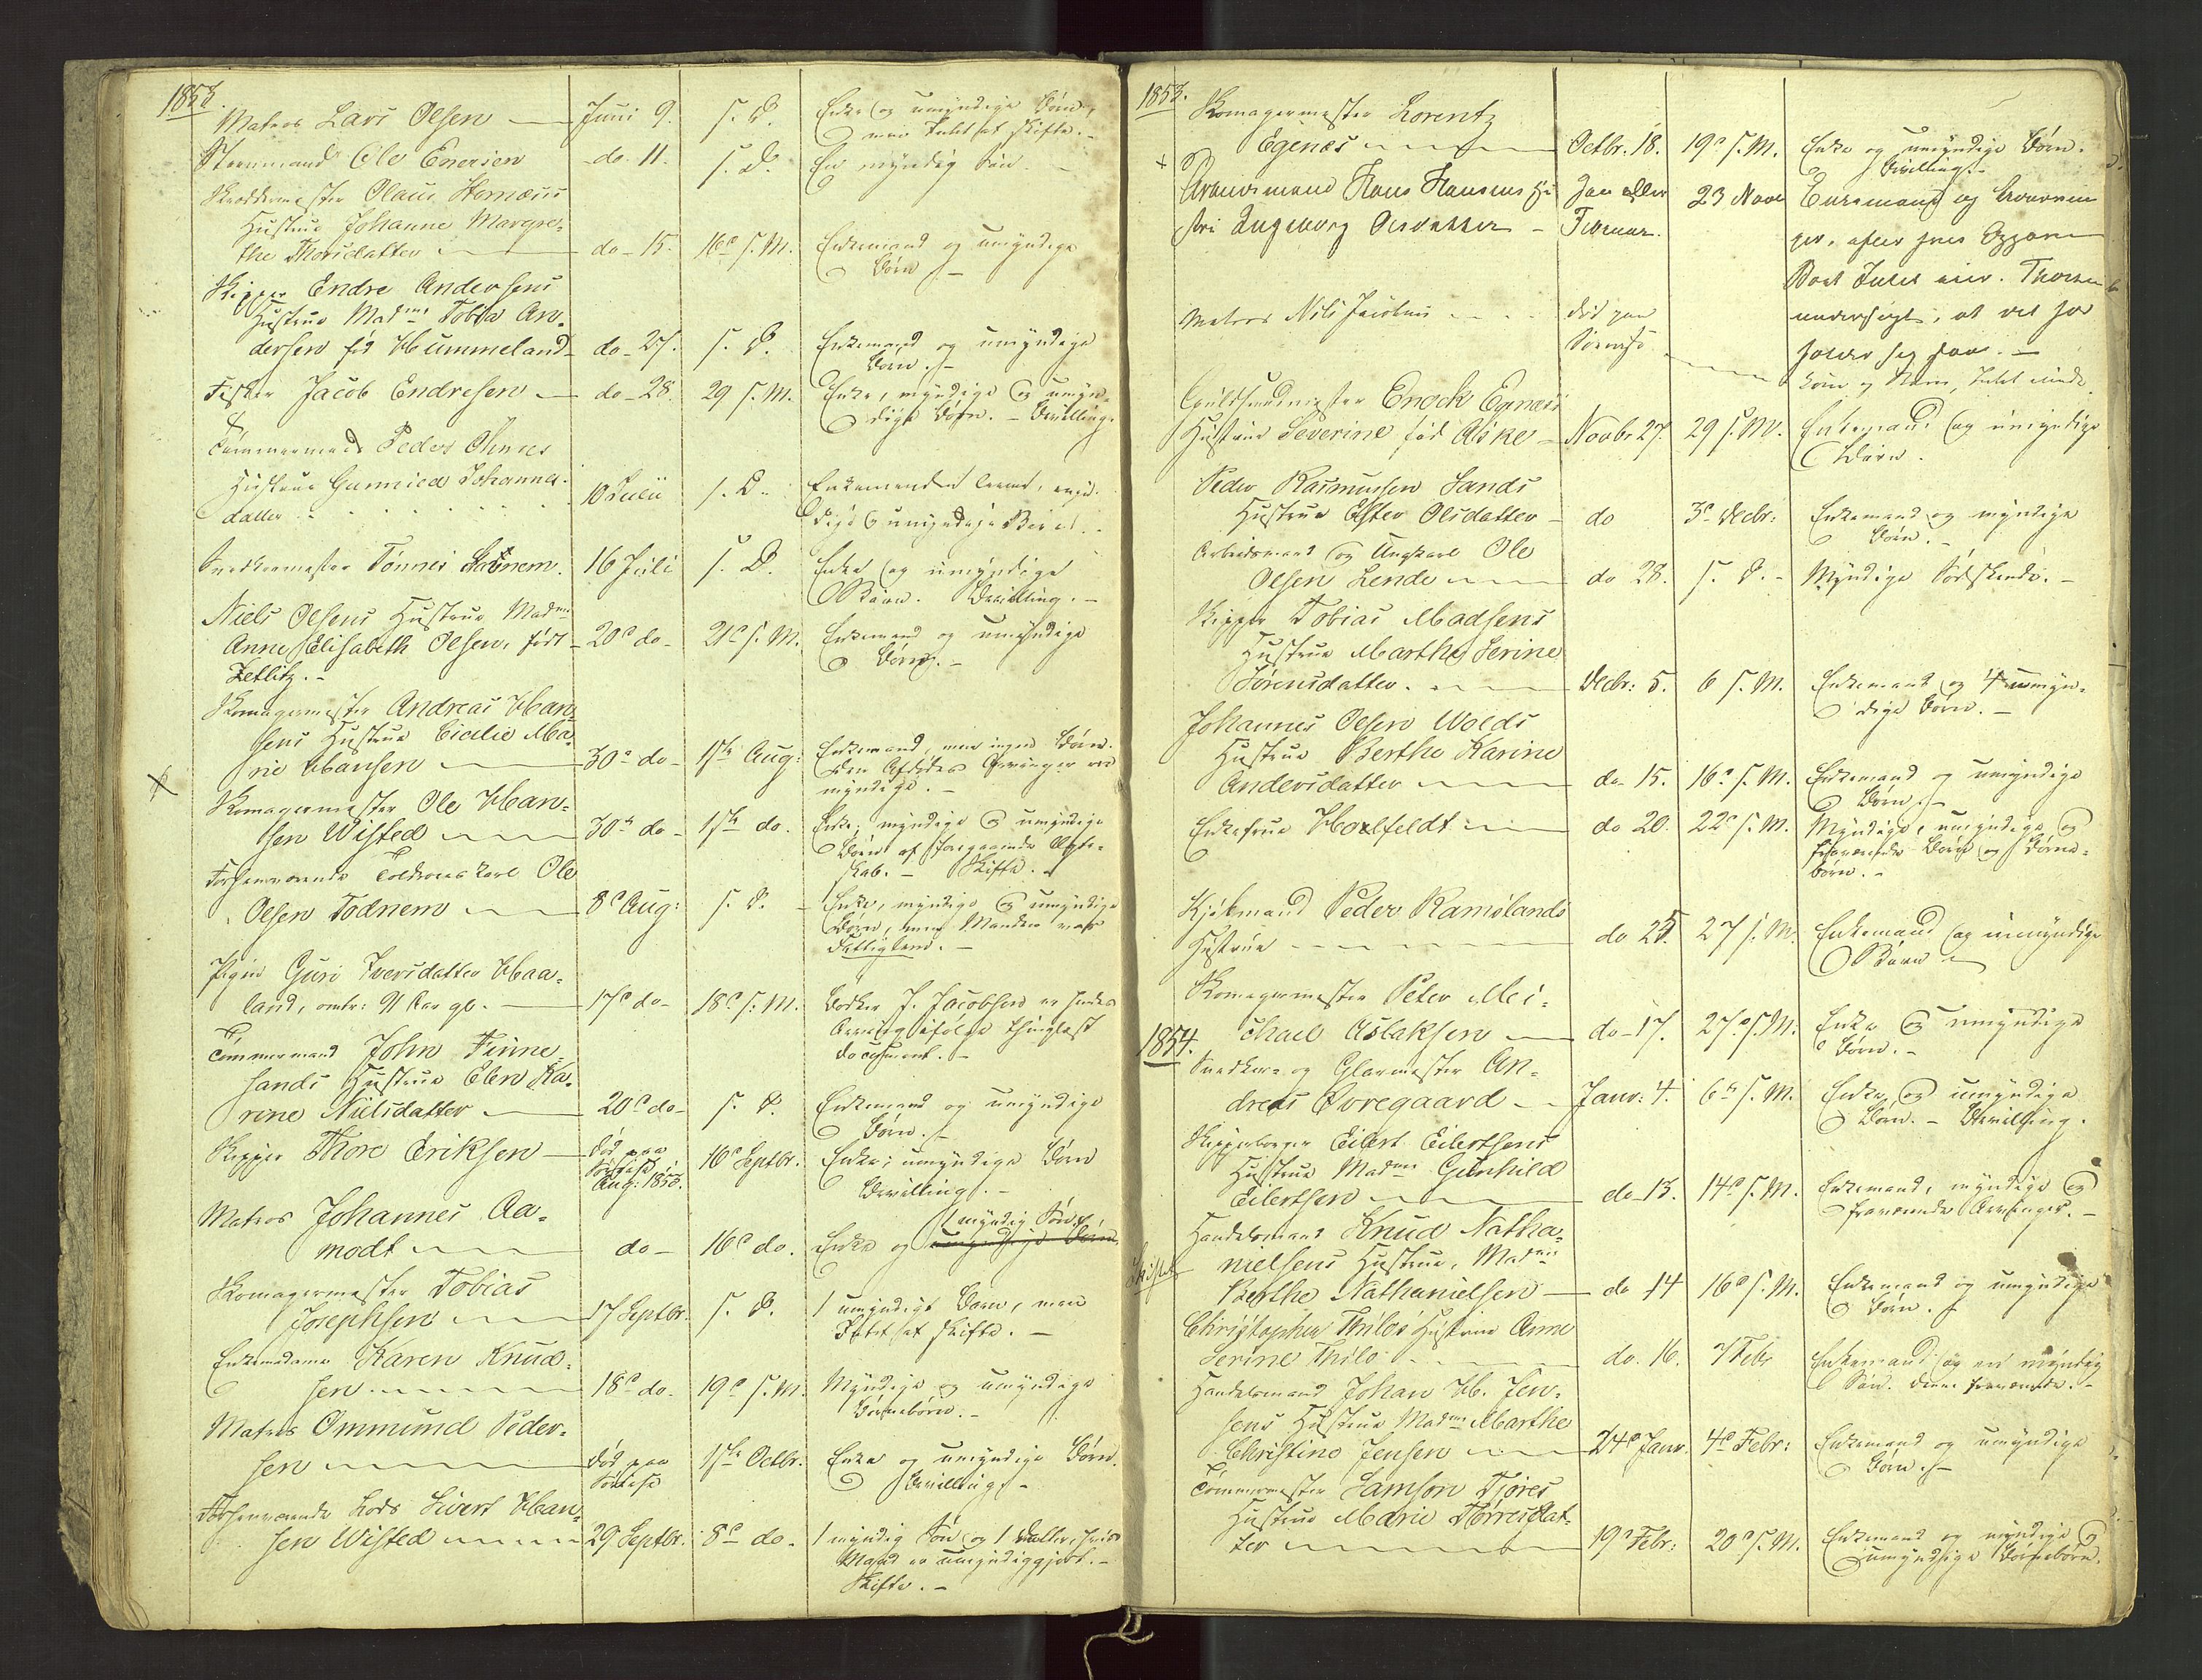 1853.
Matros Lars Olsen — Juni 9. s. D. Enke og umyndige Børn,
men Intet at skifte. –
Styrmand Ole Enersen – do 11. s. D. En myndig Søn. –
Skræddermester Olaus
Hustrue Johanne Margre-
the Thorsdatter — do – 15. 16de s. M. Enkemand og umyndige
Børn. –
Skipper Endre Andersens
Hustrue Madme Tobia An-
dersen fød Hummeland – do – 27. s. D. Enkemand og umyndige
Børn. –
Fisker Jacob Endresen — do – 28. 29 s. M. Enke, myndige og umyn-
dige Børn. – Bevilling.
Tømmermand Peder
Hustrue Gunnild Johannes-
datter 10 Julii s. D. Enkemanden
og umyndige Børn. –
Snedkermester Tønnes 16 Juli s. D. Enke og umyndige
Børn. Bevilling. –
Niels Olsens Hustrue Madme
Anne Elisabeth Olsen, født – 20de do – 21de s. M. Enkemand og umyndige
Zetlitz. – Børn. –
Skomagermester Andreas Han-
sens Hustrue Cicilie Ma-
rie Hansen — 30te do – 1ste Aug: Enkemand, men ingen Børn.
Den Afdødes Arvinger ere
myndige. –
Skomagermester Ole Han-
sen Wisted — 30te do – 1ste do. Enke, myndige og umyndige
Børn af foregaaende Ægte-
skab. – Skifte. –
Forhenværende Toldroerskarl Ole
Olsen Todnem — 8de Aug: s. D. – Enke, myndige og umyndige
Børn, men Manden var
Fattiglem. –
Pigen Guri Iversdatter Haa-
land, omtr: 91 Aar gl. — 17de do – 18de s. M. Bødker J. Jacobsen er hendes
Arving ifølge thinglæst
document. –
Tømmermand John Finne-
sands Hustrue Elen Ka-
rine Nielsdatter — 20de do – s. D. Enkemand og umyndige
Børn. –
Skipper Thore Eriksen — død paa
Søreise
Aug: 1853. 16de Septbr. Enke; umyndige Børn
Bevilling. –
Matros Johannes Aa-
modt — do – 16de do. Enke og umyndige Børn
1 myndig Søn.
Skomagermester Tobias
Josephsen — 17 Septbr. s. D. 1 umyndigt Barn, men
Intet at skifte. –
Enkemadame Karen Knud-
sen — 18de do. 19de s. M. Myndige og umyndige
Børnebørn. –
Matros Ommund Peder-
sen — død paa
Søreise 1ste Octbr. Enke og umyndige Børn.
Bevilling. –
Forhenværende Lods Sivert Han-
sen Wisted — 29 Septbr. 8de do. 1 myndig Søn og 1 Datter, hvis
Mand er umyndiggjort. –
Skifte. –
1853.
Skomagermester Lorentz
Egenæs — Octbr. 18. 19de s. M. Enke og umyndige Børn.
Bevilling. –
Hans Hansens Hu-
stru Ingeborg Olsdatter – Jan eller
Februar. 23 Novbr Enkemand og
Boet Intet eier.
Matros Nils død paa
Søreise
Guldsmedmester Enock Egenæs
Hustrue Severine fød Aske – Novbr 27. 29 s. M. Enkemand og umyndige
Børn.
Peder Rasmussen Sands
Hustrue Ester Olsdatter – do 3de Decbr: Enkemand og myndige
Børn. –
Arbeidsmand og Ungkarl Ole
Olsen Lende — do 28. s. D. – Myndige Sødskende. –
Skipper Tobias Madsens
Hustrue Marthe Serine
Sørensdatter. — Decbr: 5. 6 s. M. Enkemand og 4 umyn-
dige Børn. –
Johannes Olsen Wolds
Hustrue Berthe Karine
Andersdatter — do 15. 16de s. M. Enkemand og umyndige
Børn. –
Enkefrue — do 20. 22de s. M. Myndige, umyndige og
fraværende Børn og Børne-
børn. –
Kjøbmand Peder Ramslands
Hustrue — do 25. 27 s. M. Enkemand og umyndige
Børn
Skomagermester Peter Mei-
chael Aslaksen — do – 17. 27de s. M. Enke og umyndige
Børn. –
1854.
Snedker- og Glarmester An-
dreas Øvregaard — Janr: 4. 6te s. M. Enke og umyndige
Børn. – Bevilling.
Skipperborger Eilert Eilertsens
Hustrue Madme Gunhild
Eilertsen — do 13. 14de s. M. Enkemand, myndige og
fraværende Arvinger. –
Skifte
Handelsmand Knud Natha-
nielsens Hustrue, Madme
Berthe Nathanielsen — do 14 16de s. M. Enkemand og umyndige
Børn. –
Christopher Thilos Hustrue Anne
Serine Thilo — do. 16. 7 Febr Enkemand og en myndig
Søn. denne fraværende. –
Handelsmand Johan H. Jen-
sens Hustrue Madme Marthe
Christine Jensen — 24de Janr. 4de Febr: Enkemand og umyndige
Børn. –
Tømmermester Samson Tjøres
Hustrue Marie Tørresdat-
ter — 19de Febr: 20de s. M. Enkemand og myndige og
umyndige Børnebørn.